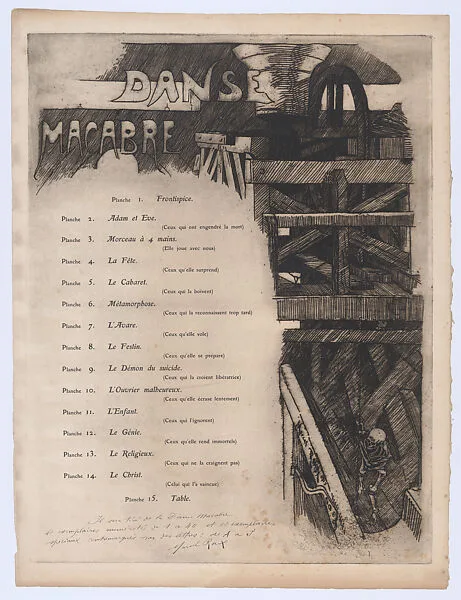 DANSE
MACABRE
Planche 1. Frontispice.
Planche 2. Adam et Eve.
(Ceux qui ont engendré la mort)
Planche 3. Morceau à 4 mains.
(Elle joue avec nous)
Planche 4. La Fête.
(Ceux qu'elle surprend)
Planche 5. Le Cabaret.
(Ceux qui la boivent)
Planche 6. Métamorphose.
(Ceux qui la reconnaissent trop tard)
Planche 7. L'Avare.
(Ceux qu'elle vole)
Planche 8. Le Festin.
(Ceux qu'elle se prépare)
Planche 9. Le Démon du suicide.
(Ceux qui la croient libératrice)
Planche 10. L'Ouvrier malheureux.
(Ceux qu'elle écrase lentement)
Planche 11. L'Enfant.
(Ceux qui l'ignorent)
Planche 12. Le Génie.
(Ceux qu'elle rend immortels)
Planche 13. Le Religieux.
(Ceux qui ne la craignent pas)
Planche 14. Le Christ.
(Celui qui l'a vaincue)
Planche 15. Table.
de la Danse Macabre
40 exemplaires numérotés de 1 à 40 et exemplaires
de A à